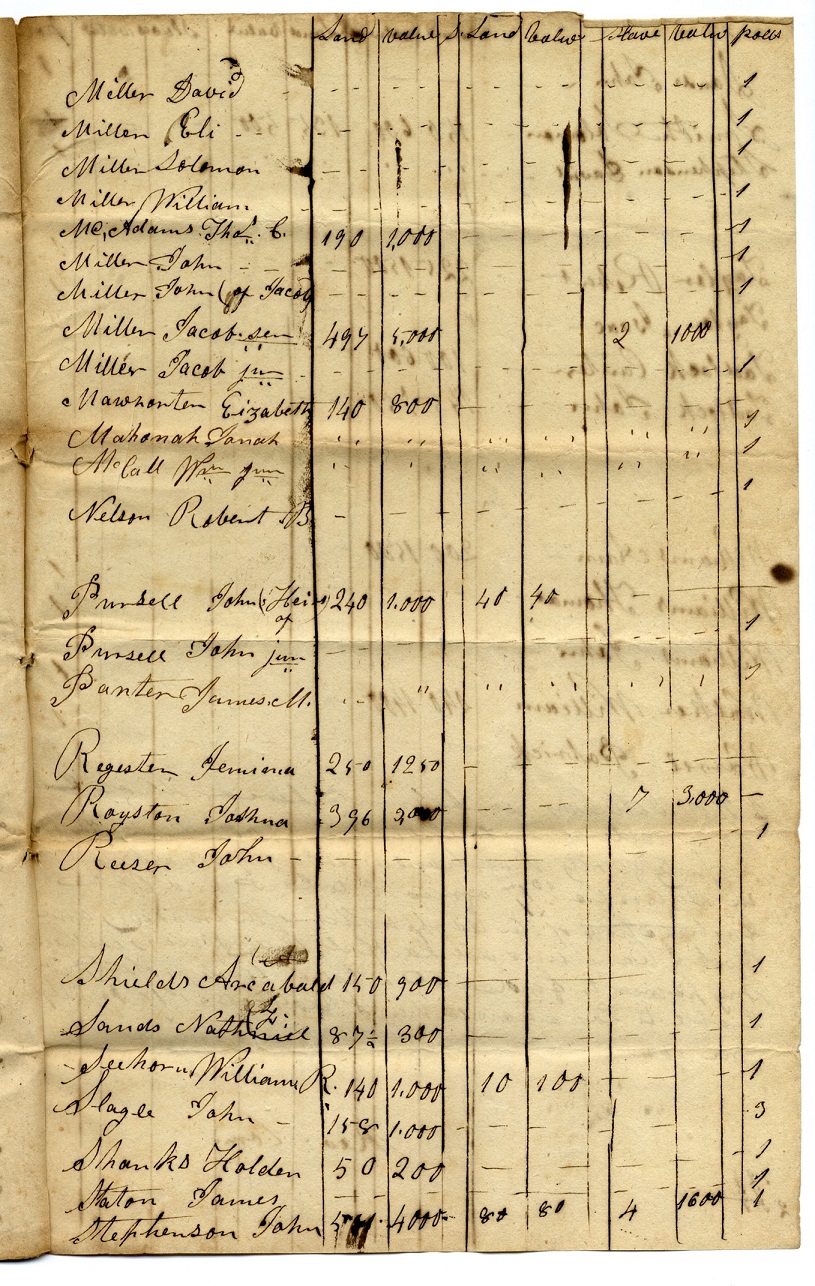 Land Value S. Land Value Slave Value polls
Miller David - - - - - - - 1
Miller Eli - - - - - - - - 1
Miller Solomon - - - - - - - 1
Miller William - - - - - - - 1
Mc,Adams Thos. C. 190 1,000 - - - - 1
Miller John - - - - - - - - 1
Miller John (of Jacob) - - - - - - 1
Miller Jacob sen 497 5,000 2 1000
Miller Jacob jun - - - - - - - 1
Mawhorter Eizabeth 140 800 - - - -
Mahonah Jonah " " " " " " 1
McCall Wm jun " " " " " " 1
Nelson Robert B - - - - - - 1
Pursell John (Heirs of) 240 1.000 40 40 - - -
Pursell John jun - - - - - - 1
Porter James. M. " " " " " " 1
Register Jemima 250 1250 - - - - -
Royston Joshua 396 - - 7 3,000 -
Reeser John - - - - - - - 1
Shields Arcabald 150 900 - - - - 1
Sands Nathniel 87½ 300 - - - - 1
Seehorn William R. 140 1.000 10 100 - - 1
Slagle John - 158 1.000 - - - - 3
Shanks Holden 50 200 - - - - 1
Staton James - - - - - - 1
Stephenson John 4000 80 80 4 1600 1